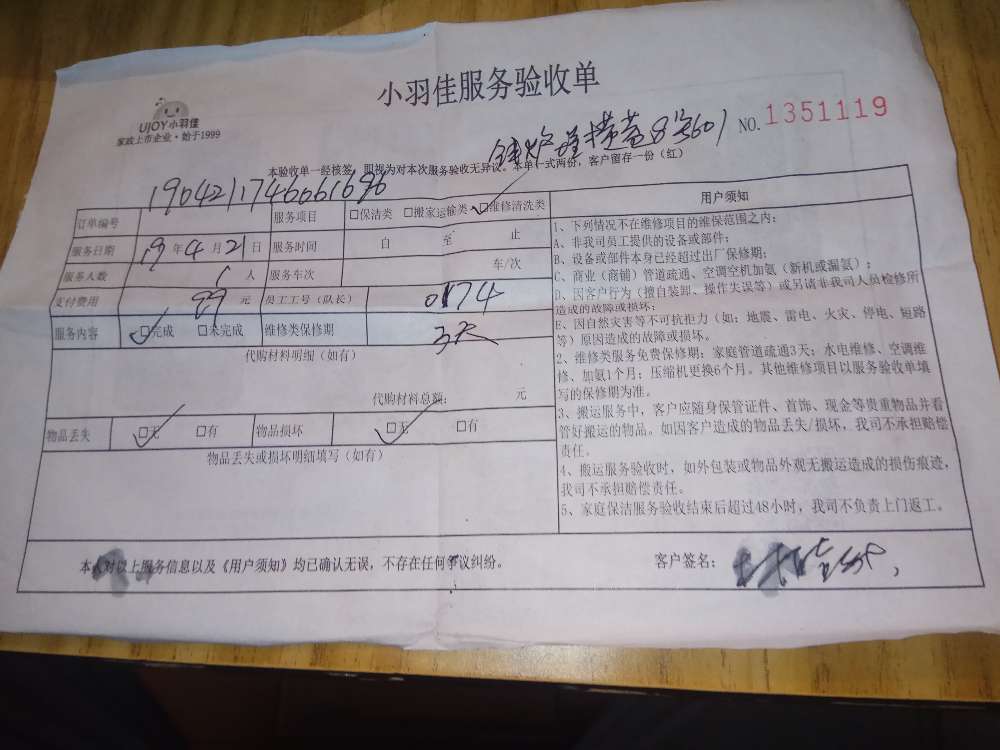 小羽佳服务验收单
UJOY小羽佳
家政上市企业·始于1999
8号601
NO. 1351119
本验收单一经核签，即视为对本次服务验收无异议。本单一式两份，客户留存一份（红）
订单编号 1904211746061696 服务项目 □保洁类 □搬家运输类 □维修清洗类
服务日期 19年4月21日 服务时间 自 至 止
服务人数 1人 服务车次 车/次
支付费用 99元 员工工号（队长） 0174
服务内容 □完成 □未完成 维修类保修期 3天
代购材料明细（如有）
代购材料总额： 元
物品丢失 □无 □有 物品损坏 □无 □有
物品丢失或损坏明细填写（如有）
用户须知
1、下列情况不在维修项目的维保范围之内：
A、非我司员工提供的设备或部件；
B、设备或部件本身已经超过出厂保修期；
C、商业（商铺）管道疏通、空调空机加氨（新机或漏氨）；
D、因客户行为（擅自装卸、操作失误等）或另请非我司人员检修所
造成的故障或损坏；
E、因自然灾害等不可抗拒力（如：地震、雷电、火灾、停电、短路
等）原因造成的故障或损坏。
2、维修类服务免费保修期：家庭管道疏通3天；水电维修、空调维
修、加氨1个月；压缩机更换6个月。其他维修项目以服务验收单填
写的保修期为准。
3、搬运服务中，客户应随身保管证件、首饰、现金等贵重物品并看
管好搬运的物品。如因客户造成的物品丢失/损坏，我司不承担赔偿
责任。
4、搬运服务验收时，如外包装或物品外观无搬运造成的损伤痕迹，
我司不承担赔偿责任。
5、家庭保洁服务验收结束后超过48小时，我司不负责上门返工。
本人对以上服务信息以及《用户须知》均已确认无误，不存在任何争议纠纷。
客户签名：